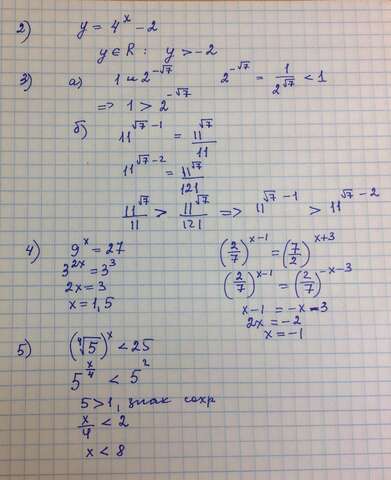 2) y = 4^x - 2
y ∈ R : y > -2
3) а) 1 и 2^{-√7} 2^{-√7} = 1/2^{√7} < 1
=> 1 > 2^{-√7}
б) 11^{√7 - 1} = 11^{√7}/11
11^{√7 - 2} = 11^{√7}/121
11^{√7}/11 > 11^{√7}/121 => 11^{√7 - 1} > 11^{√7 - 2}
4) 9^x = 27 (2/7)^{x-1} = (7/2)^{x+3}
3^{2x} = 3^3 (2/7)^{x-1} = (2/7)^{-x-3}
2x = 3 x-1 = -x-3
x = 1,5 2x = -2
x = -1
5) (⁴√5)^x < 25
5^{x/4} < 5^2
5 > 1, знак сохр
x/4 < 2
x < 8